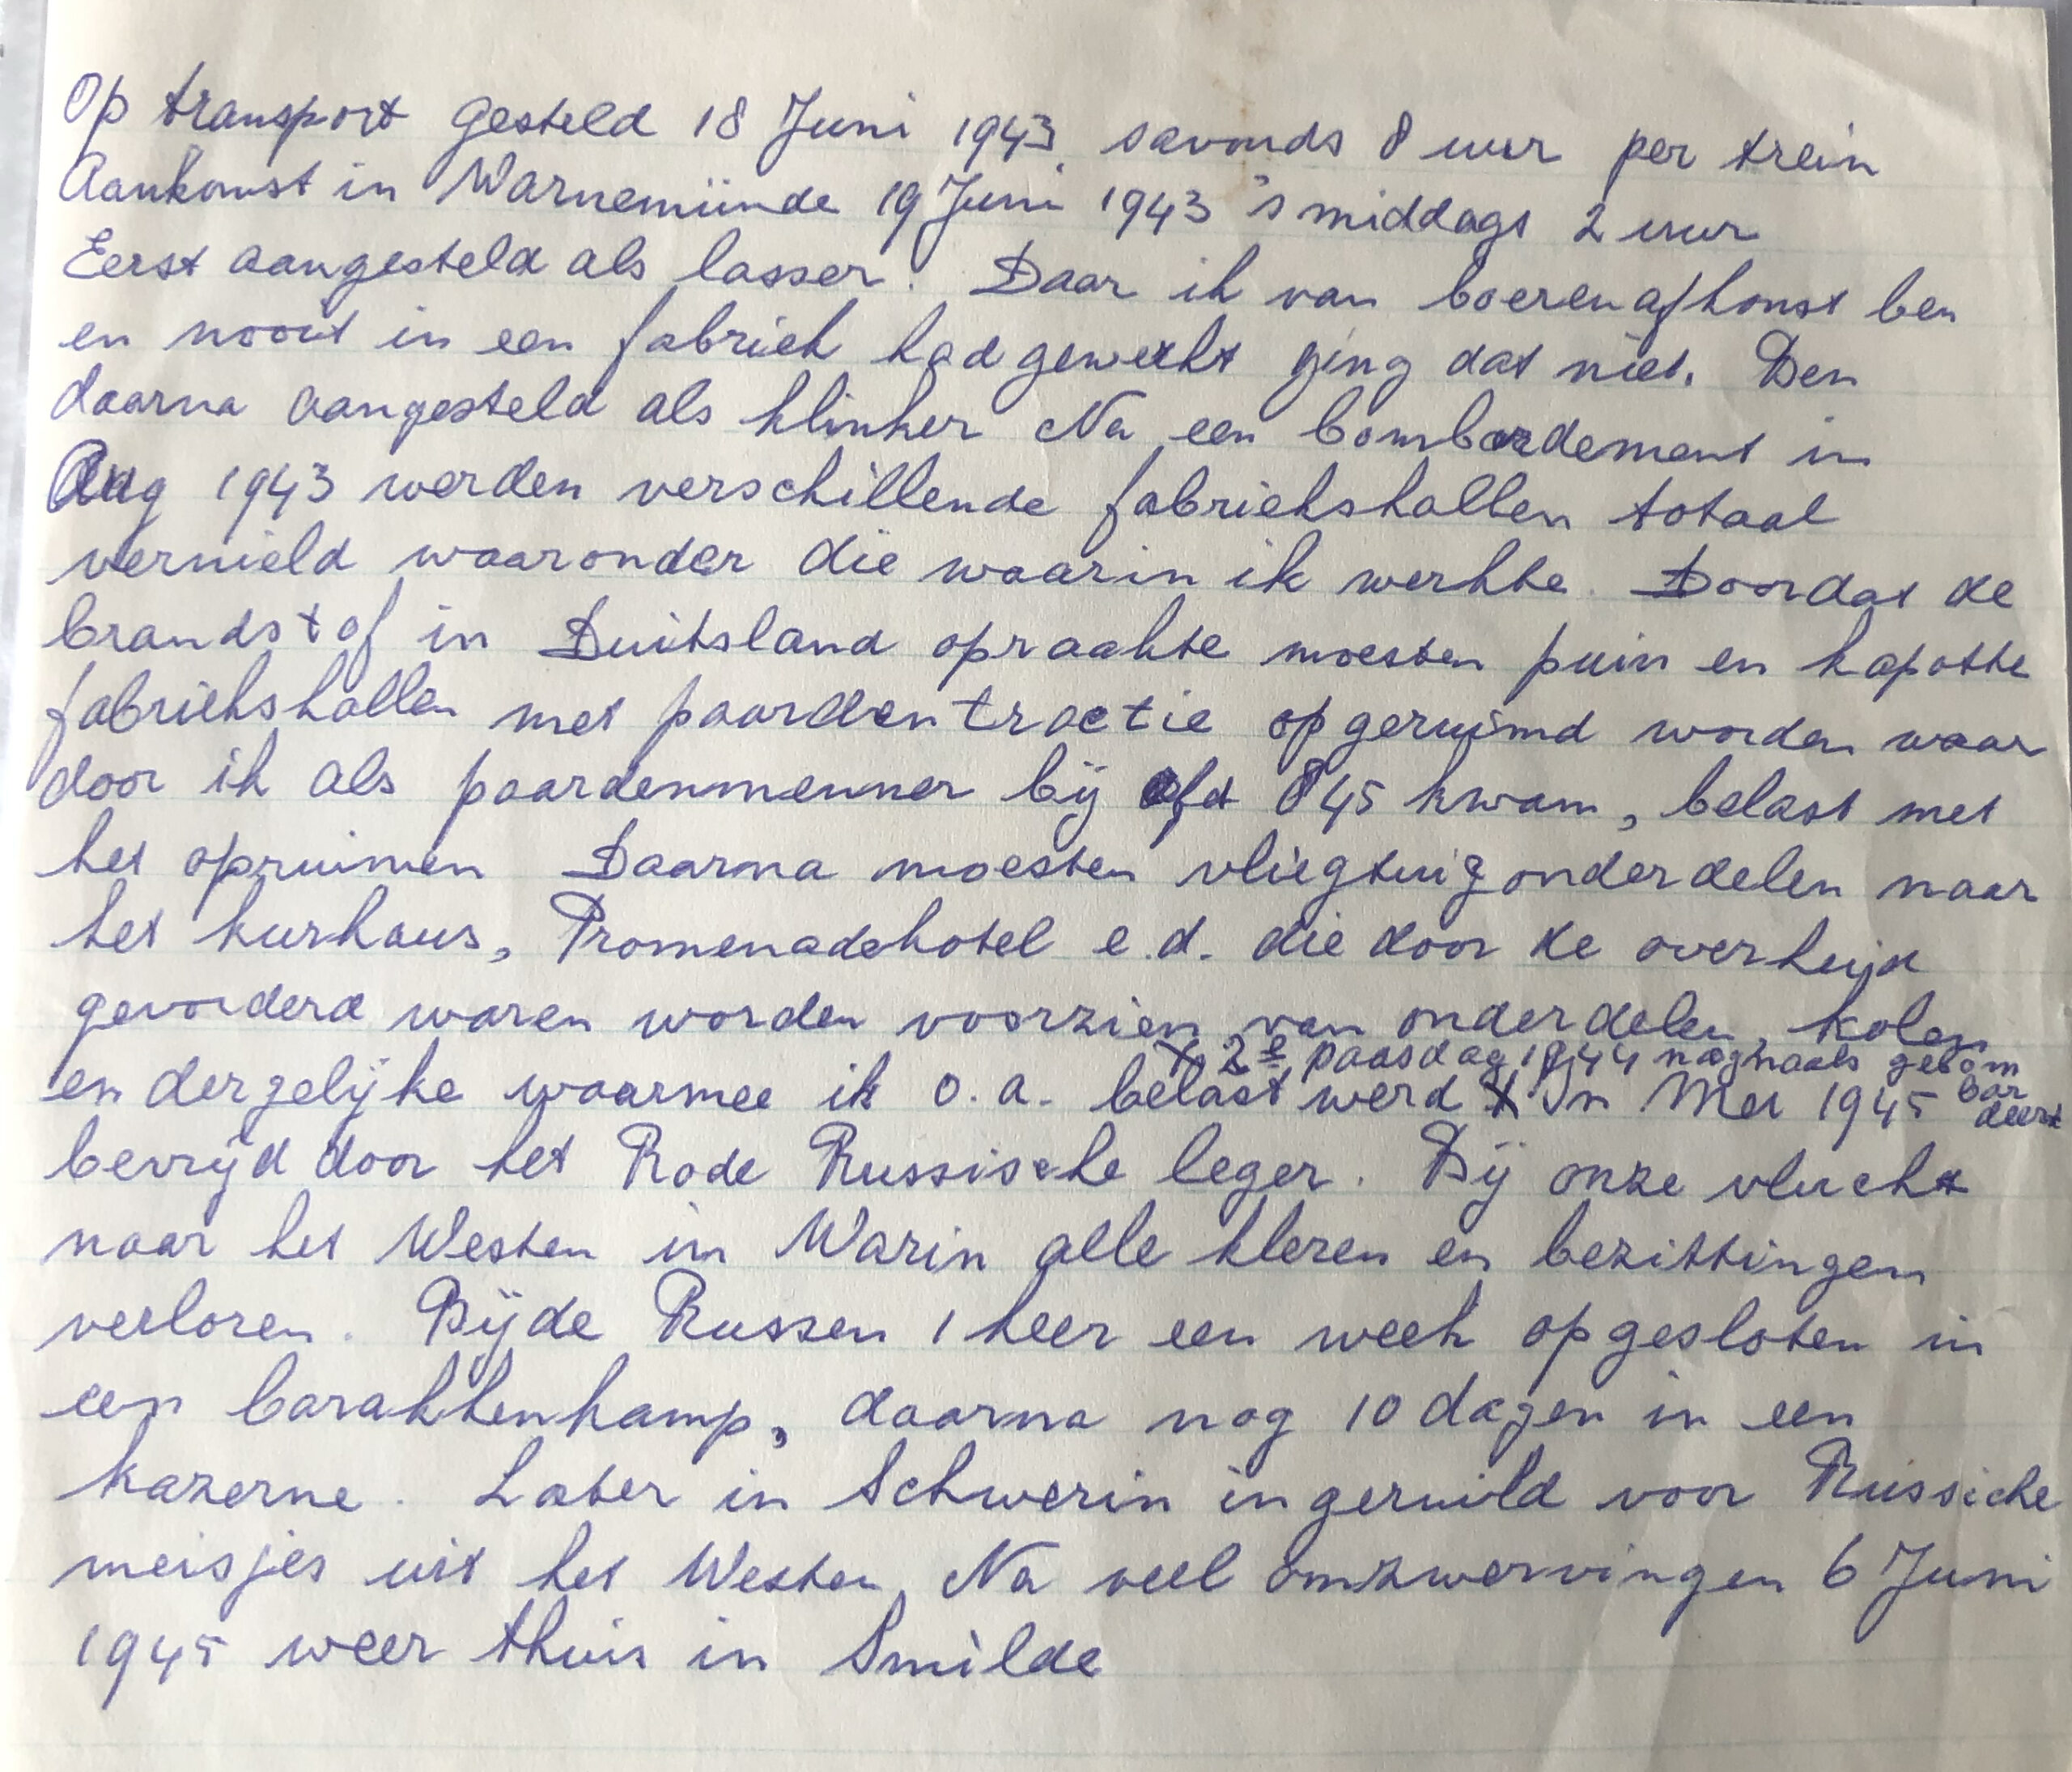 Op transport gesteld 18 Juni 1943 savonds 8 uur per trein
Aankomst in Warnemünde 19 Juni 1943 's middags 2 uur
Eerst aangesteld als lasser. Daar ik van boerenafkomst ben
en nooit in een fabriek had gewerkt ging dat niet. Ben
daarna aangesteld als klinker Na een bombardement in
Aug 1943 werden verschillende fabriekshallen totaal
vernield waaronder die waarin ik werkte. Doordat de
brandstof in Duitsland opraakte moesten puin en kapotte
fabriekshallen met paardentractie opgeruimd worden waar
door ik als paardenmenner bij afd 845 kwam, belast met
het opruimen Daarna moesten vliegtuigonderdelen naar
het kurhaus, Promenadehotel e.d. die door de overheid
gevorderd waren worden voorzien van onderdelen, kolen
X 2e paasdag 1944 nogmaals gebom
bar
deert
en dergelijke waarmee ik o.a. belast werd X In Mei 1945
bevrijd door het Rode Russische leger. Bij onze vlucht
naar het Westen in Warin alle kleren en bezittingen
verloren. Bij de Russen 1 keer een week opgesloten in
een barakkenkamp, daarna nog 10 dagen in een
kazerne. Later in Schwerin ingeruild voor Russiche
meisjes uit het Westen. Na veel omzwervingen 6 Juni
1945 weer thuis in Smilde